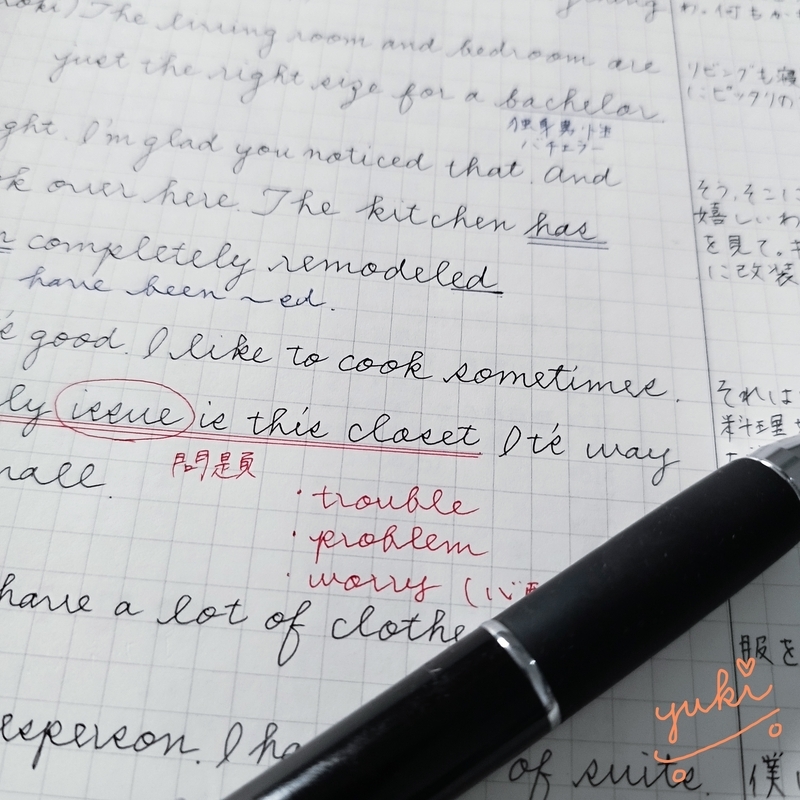 The living room and bedroom are
just the right size for a bachelor.
独身男性
バチェラー
I'm glad you noticed that. And
over here. The kitchen has
completely remodeled
have been ~ed.
good. I like to cook sometimes.
issue is this closet It's way
問題
・trouble
・problem
・worry (心配
have a lot of
I
of suits.
リビングも
にピッタリの
そう、そこに
嬉しいわ
を見て。キ
に改装
それは
料理
服を
僕
yuki